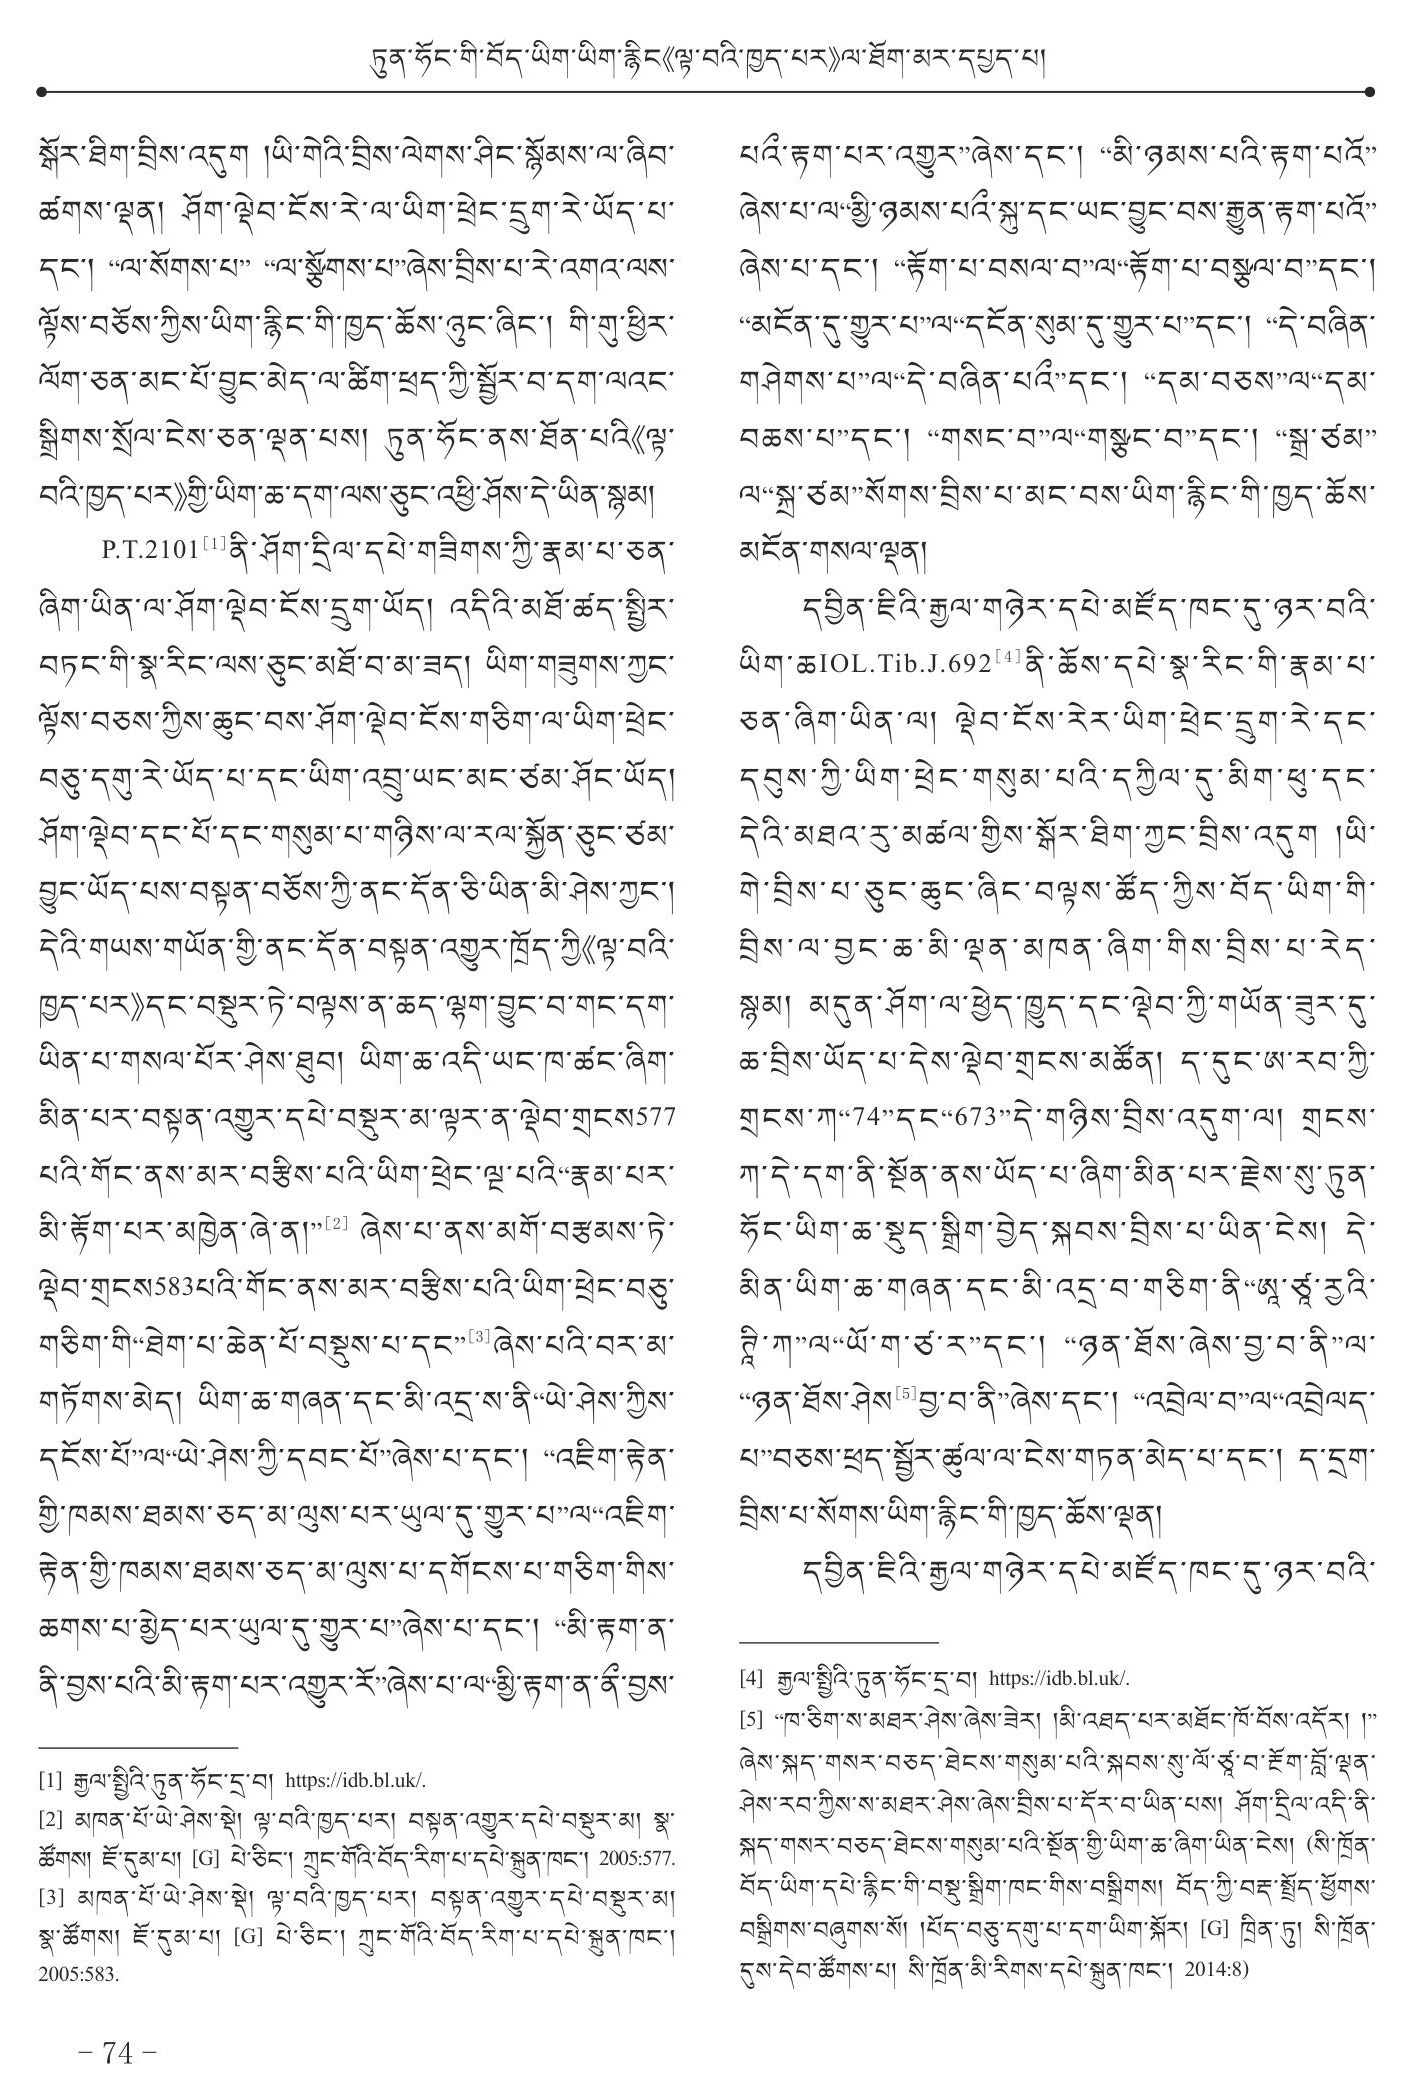 ཏུན་ཧོང་གི་བོད་ཡིག་ཡིག་རྙིང《ལྟ་བའི་ཁྱད་པར》ལ་ཐོག་མར་དཔྱད་པ།
སྒོར་ཐིག་བྲིས་འདུག །ཡི་གེའི་བྲིས་ལེགས་ཤིང་སྙོམས་ལ་ཞིབ་
ཚགས་ལྡན། ཤོག་ལྡེབ་ངོས་རེ་ལ་ཡིག་ཕྲེང་དྲུག་རེ་ཡོད་པ་
དང་། “ལ་སོགས་པ” “ལ་སྩོགས་པ”ཞེས་བྲིས་པ་རེ་འགའ་ལས་
ལྟོས་བཅོས་ཀྱིས་ཡིག་རྙིང་གི་ཁྱད་ཆོས་ཉུང་ཞིང་། གི་གུ་ཕྱིར་
ལོག་ཅན་མང་པོ་བྱུང་མེད་ལ་ཚིག་ཕྲད་ཀྱི་སྦྱོར་བ་དག་ལའང་
སྒྲིགས་སྲོལ་ངེས་ཅན་ལྡན་པས། ཏུན་ཧོང་ནས་ཐོན་པའི《ལྟ་
བའི་ཁྱད་པར》གྱི་ཡིག་ཆ་དག་ལས་ཅུང་འཕྱི་ཤོས་དེ་ཡིན་སྙམ།
P.T.2101[1]ནི་ཤོག་དྲིལ་དཔེ་གཟིགས་ཀྱི་རྣམ་པ་ཅན་
ཞིག་ཡིན་ལ་ཤོག་ལྡེབ་ངོས་དྲུག་ཡོད། འདིའི་མཐོ་ཚད་སྤྱིར་
བཏང་གི་སྣ་རིང་ལས་ཅུང་མཐོ་བ་མ་ཟད། ཡིག་གཟུགས་ཀྱང་
ལྟོས་བཅས་ཀྱིས་ཆུང་བས་ཤོག་ལྡེབ་ངོས་གཅིག་ལ་ཡིག་ཕྲེང་
བཅུ་དགུ་རེ་ཡོད་པ་དང་ཡིག་འབྲུ་ཡང་མང་ཙམ་ཤོང་ཡོད།
ཤོག་ལྡེབ་དང་པོ་དང་གསུམ་པ་གཉིས་ལ་རལ་སྐྱོན་ཅུང་ཙམ་
བྱུང་ཡོད་པས་བསྟན་བཅོས་ཀྱི་ནང་དོན་ཅི་ཡིན་མི་ཤེས་ཀྱང་།
དེའི་གཡས་གཡོན་གྱི་ནང་དོན་བསྟན་འགྱུར་ཁྲོད་ཀྱི《ལྟ་བའི་
ཁྱད་པར》དང་བསྡུར་ཏེ་བལྟས་ན་ཆད་ལྷག་བྱུང་བ་གང་དག་
ཡིན་པ་གསལ་པོར་ཤེས་ཐུབ། ཡིག་ཆ་འདི་ཡང་ཁ་ཚང་ཞིག་
མིན་པར་བསྟན་འགྱུར་དཔེ་བསྡུར་མ་ལྟར་ན་ལྡེབ་གྲངས577
པའི་གོང་ནས་མར་བརྩིས་པའི་ཡིག་ཕྲེང་ལྔ་པའི“རྣམ་པར་
མི་རྟོག་པར་མཁྱེན་ཞེ་ན།”[2] ཞེས་པ་ནས་མགོ་བརྩམས་ཏེ་
ལྡེབ་གྲངས583པའི་གོང་ནས་མར་བརྩིས་པའི་ཡིག་ཕྲེང་བཅུ་
གཅིག་གི“ཐེག་པ་ཆེན་པོ་བསྡུས་པ་དང”[3]ཞེས་པའི་བར་མ་
གཏོགས་མེད། ཡིག་ཆ་གཞན་དང་མི་འདྲ་ས་ནི“ཡེ་ཤེས་ཀྱིས་
དངོས་པོ”ལ“ཡེ་ཤེས་ཀྱི་དབང་པོ”ཞེས་པ་དང་། “འཇིག་རྟེན་
གྱི་ཁམས་ཐམས་ཅད་མ་ལུས་པར་ཡུལ་དུ་གྱུར་པ”ལ“འཇིག་
རྟེན་གྱི་ཁམས་ཐམས་ཅད་མ་ལུས་པ་དགོངས་པ་གཅིག་གིས་
ཆགས་པ་མྱེད་པར་ཡུལ་དུ་གྱུར་པ”ཞེས་པ་དང་། “མི་རྟག་ན་
ནི་བྱས་པའི་མི་རྟག་པར་འགྱུར་རོ”ཞེས་པ་ལ“མྱི་རྟག་ན་ནྀ་བྱས་
[1] རྒྱལ་སྤྱིའི་ཏུན་ཧོང་དྲ་བ། https://idb.bl.uk/.
[2] མཁན་པོ་ཡེ་ཤེས་སྡེ། ལྟ་བའི་ཁྱད་པར། བསྟན་འགྱུར་དཔེ་བསྡུར་མ། སྣ་
ཚོགས། ཇོ་དུམ་པ། [G] པེ་ཅིང་། ཀྲུང་གོའི་བོད་རིག་པ་དཔེ་སྐྲུན་ཁང་། 2005:577.
[3] མཁན་པོ་ཡེ་ཤེས་སྡེ། ལྟ་བའི་ཁྱད་པར། བསྟན་འགྱུར་དཔེ་བསྡུར་མ།
སྣ་ཚོགས། ཇོ་དུམ་པ། [G] པེ་ཅིང་། ཀྲུང་གོའི་བོད་རིག་པ་དཔེ་སྐྲུན་ཁང་།
2005:583.
པའྀ་རྟག་པར་འགྱུར”ཞེས་དང་། “མི་ཉམས་པའི་རྟག་པའོ”
ཞེས་པ་ལ“མྱི་ཉམས་པའྀ་སྐུ་དང་ཡང་བྱུང་བས་རྒྱུན་རྟག་པའོ”
ཞེས་པ་དང་། “རྟོག་པ་བསལ་བ”ལ“རྟོག་པ་བསྩལ་བ”དང་།
“མངོན་དུ་གྱུར་པ”ལ“དངོན་སུམ་དུ་གྱུར་པ”དང་། “དེ་བཞིན་
གཤེགས་པ”ལ“དེ་བཞིན་པའྀ”དང་། “དམ་བཅས”ལ“དམ་
བཆས་པ”དང་། “གསང་བ”ལ“གསྩང་བ”དང་། “སྒྲ་ཙམ”
ལ“སྐྲ་ཙམ”སོགས་བྲིས་པ་མང་བས་ཡིག་རྙིང་གི་ཁྱད་ཆོས་
མངོན་གསལ་ལྡན།
དབྱིན་ཇིའི་རྒྱལ་གཉེར་དཔེ་མཛོད་ཁང་དུ་ཉར་བའི་
ཡིག་ཆIOL.Tib.J.692[4]ནི་ཆོས་དཔེ་སྣ་རིང་གི་རྣམ་པ་
ཅན་ཞིག་ཡིན་ལ། ལྡེབ་ངོས་རེར་ཡིག་ཕྲེང་དྲུག་རེ་དང་
དབུས་ཀྱི་ཡིག་ཕྲེང་གསུམ་པའི་དཀྱིལ་དུ་མིག་ཕུ་དང་
དེའི་མཐའ་རུ་མཚལ་གྱིས་སྒོར་ཐིག་ཀྱང་བྲིས་འདུག །ཡི་
གེ་བྲིས་པ་ཅུང་ཆུང་ཞིང་བལྟས་ཚོད་ཀྱིས་བོད་ཡིག་གི་
བྲིས་ལ་བྱང་ཆ་མི་ལྡན་མཁན་ཞིག་གིས་བྲིས་པ་རེད་
སྙམ། མདུན་ཤོག་ལ་ཕྱེད་ཁྱུད་དང་ལྡེབ་ཀྱི་གཡོན་ཟུར་དུ་
ཆ་བྲིས་ཡོད་པ་དེས་ལྡེབ་གྲངས་མཚོན། ད་དུང་ཨ་རབ་ཀྱི་
གྲངས་ཀ“74”དང“673”དེ་གཉིས་བྲིས་འདུག་ལ། གྲངས་
ཀ་དེ་དག་ནི་སྔོན་ནས་ཡོད་པ་ཞིག་མིན་པར་རྗེས་སུ་ཏུན་
ཧོང་ཡིག་ཆ་སྡུད་སྒྲིག་བྱེད་སྐབས་བྲིས་པ་ཡིན་ངེས། དེ་
མིན་ཡིག་ཆ་གཞན་དང་མི་འདྲ་བ་གཅིག་ནི“ཨཱ་ཙཱ་རྱའི་
ཊཱི་ཀ”ལ“ཡོ་ག་ཙ་ར”དང་། “ཉན་ཐོས་ཞེས་བྱ་བ་ནི”ལ་
“ཉན་ཐོས་ཤེས[5]བྱ་བ་ནི”ཞེས་དང་། “འབྲེལ་བ”ལ“འབྲེལད་
པ”བཅས་ཕྲད་སྦྱོར་ཚུལ་ལ་ངེས་གཏན་མེད་པ་དང་། ད་དྲག་
བྲིས་པ་སོགས་ཡིག་རྙིང་གི་ཁྱད་ཆོས་ལྡན།
དབྱིན་ཇིའི་རྒྱལ་གཉེར་དཔེ་མཛོད་ཁང་དུ་ཉར་བའི་
[4] རྒྱལ་སྤྱིའི་ཏུན་ཧོང་དྲ་བ། https://idb.bl.uk/.
[5] “ཁ་ཅིག་ས་མཐར་ཤེས་ཞེས་ཟེར། །མི་འཐད་པར་མཐོང་ཁོ་བོས་འདོར། །”
ཞེས་སྐད་གསར་བཅད་ཐེངས་གསུམ་པའི་སྐབས་སུ་ལོ་ཙཱ་བ་རྔོག་བློ་ལྡན་
ཤེས་རབ་ཀྱིས་ས་མཐར་ཤེས་ཞེས་བྲིས་པ་དོར་བ་ཡིན་པས། ཤོག་དྲིལ་འདི་ནི་
སྐད་གསར་བཅད་ཐེངས་གསུམ་པའི་སྔོན་གྱི་ཡིག་ཆ་ཞིག་ཡིན་ངེས། (སི་ཁྲོན་
བོད་ཡིག་དཔེ་རྙིང་གི་བསྡུ་སྒྲིག་ཁང་གིས་བསྒྲིགས། བོད་ཀྱི་བརྡ་སྤྲོད་ཕྱོགས་
བསྒྲིགས་བཞུགས་སོ། །པོད་བཅུ་དགུ་པ་དག་ཡིག་སྐོར། [G] ཁྲིན་ཏུ། སི་ཁྲོན་
དུས་དེབ་ཚོགས་པ། སི་ཁྲོན་མི་རིགས་དཔེ་སྐྲུན་ཁང་། 2014:8)
– 74 –